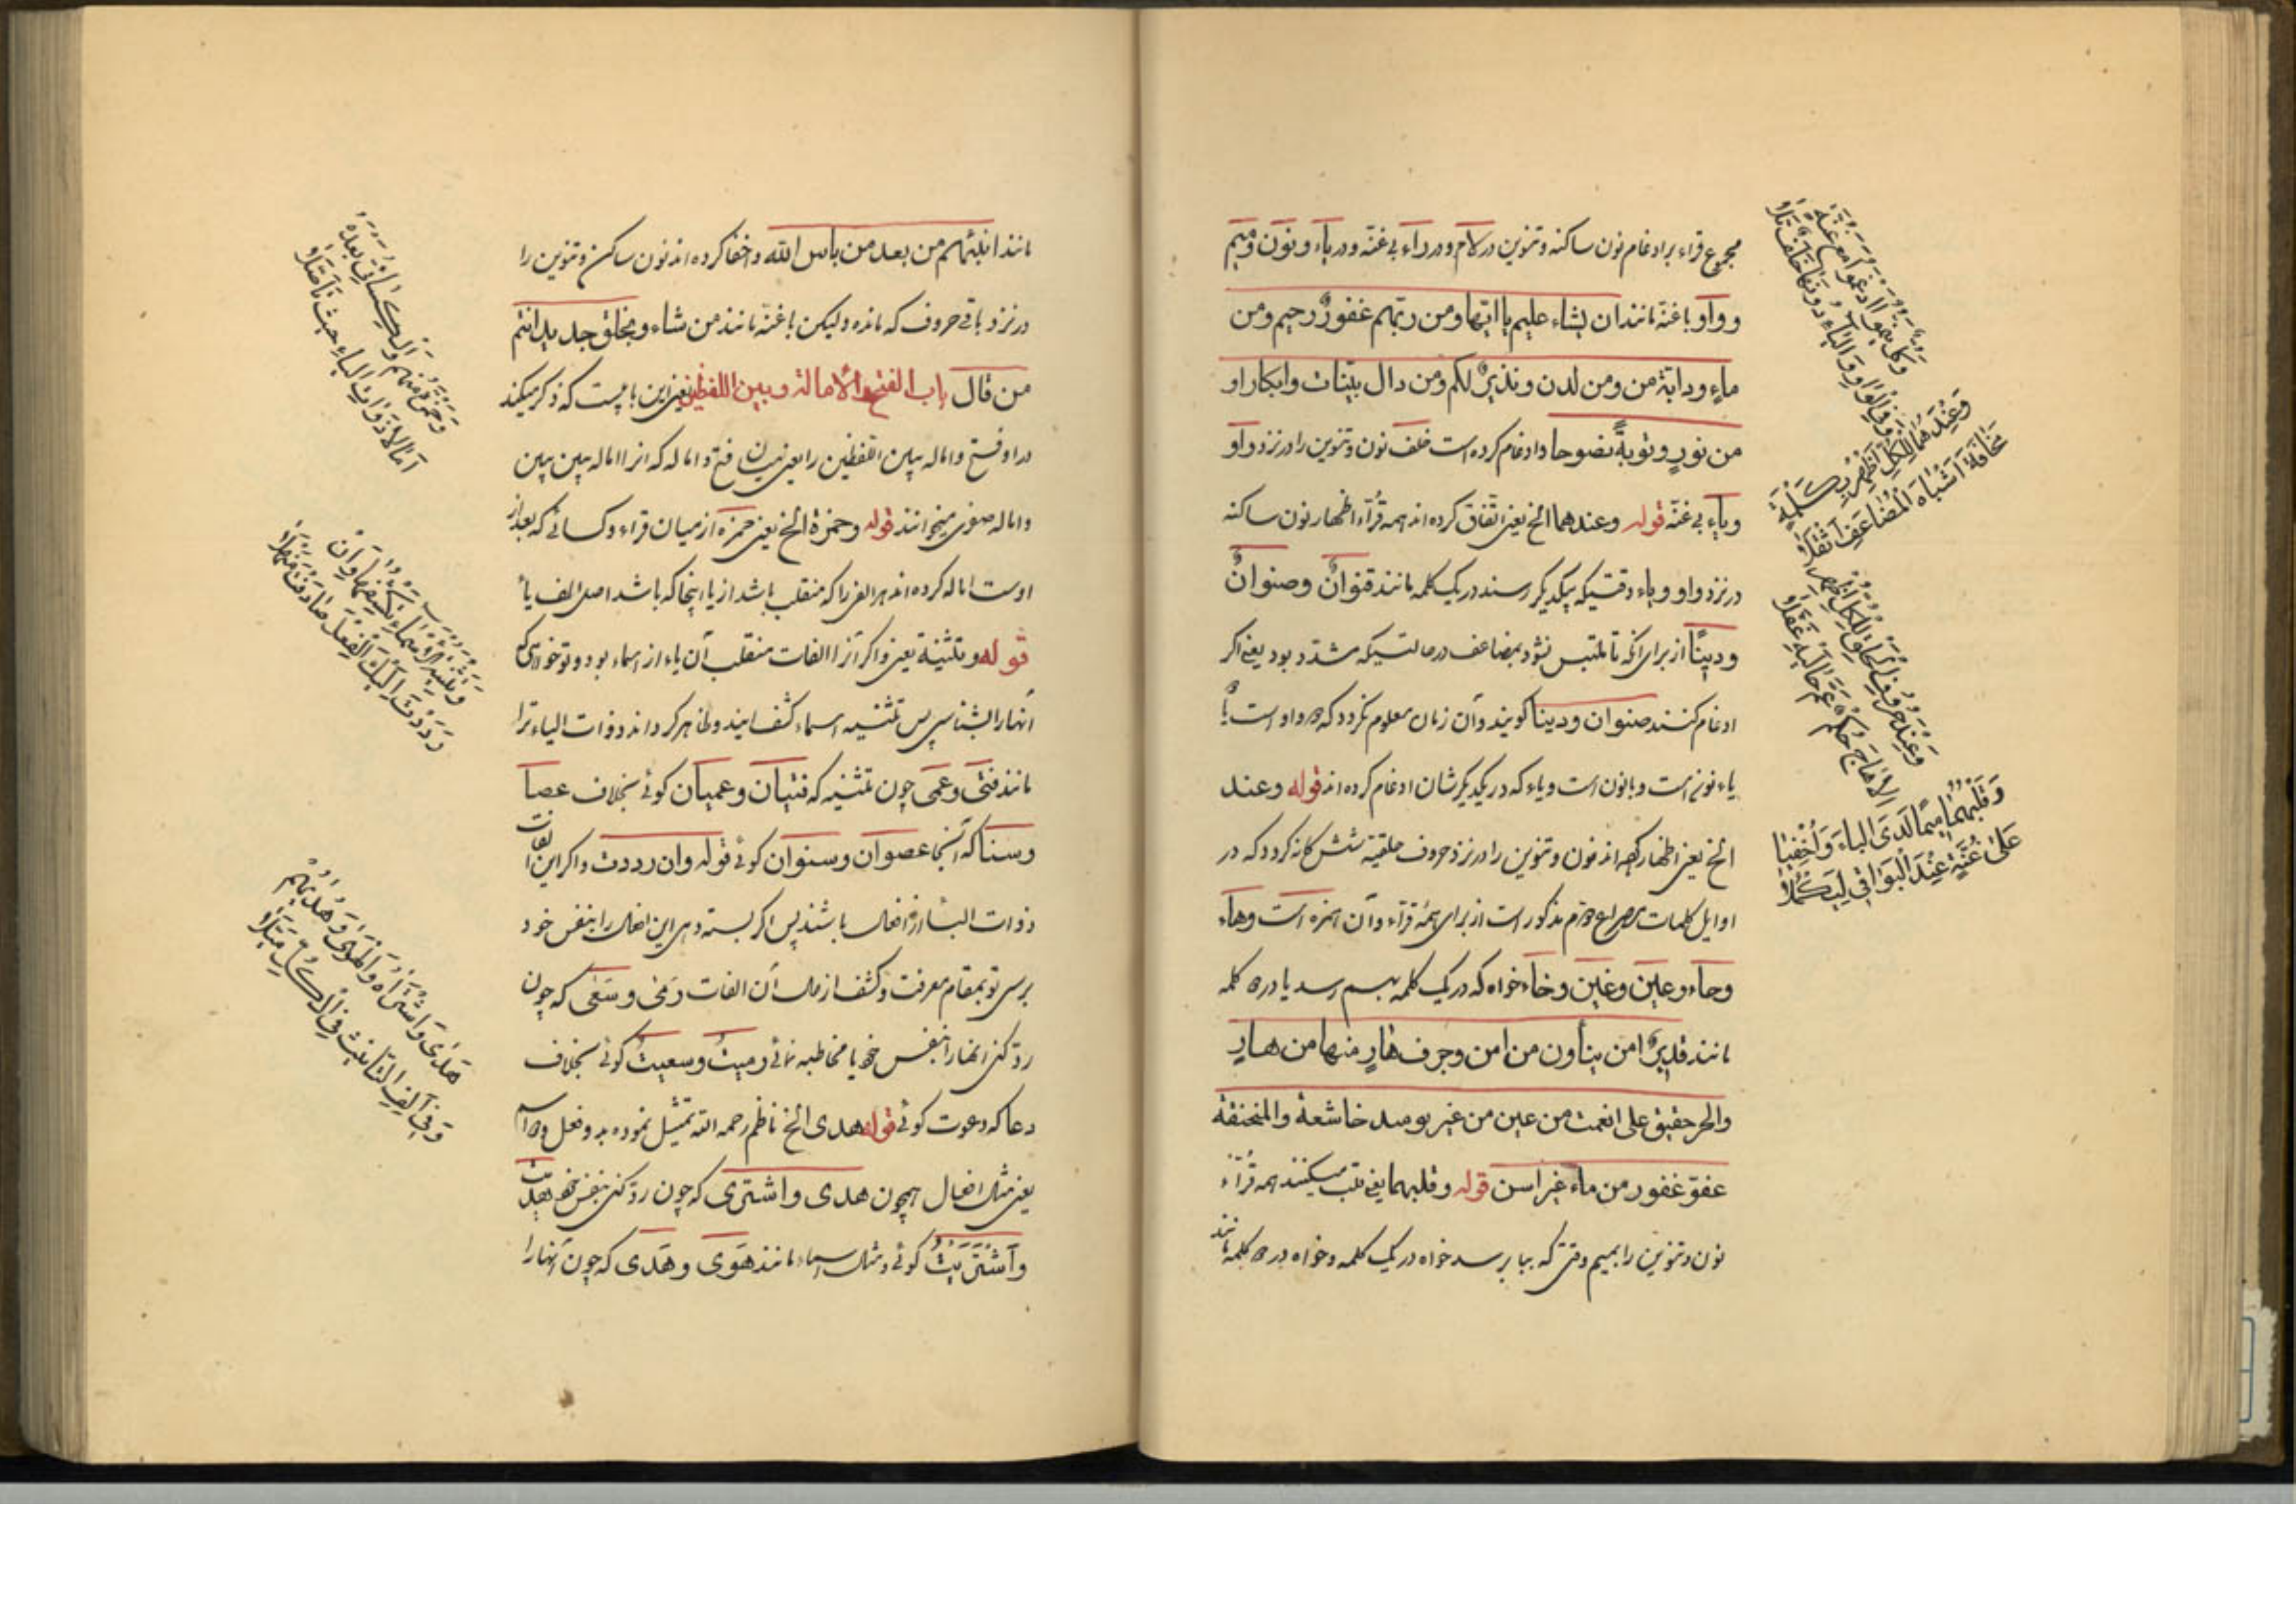 مجموع قراء بر ادغام نون ساکنه و تنوین در لام و در راء بی غنّه و در یاء و نون و میم
و واو با غنّه مانند ان یشاء علیم یا ایتها ومن ربّهم غفورٌ رحیم ومن
ماءٍ ودابّة من ومن لدن ونذیرٌ لکم ومن دال بیّنات وابکارا و
من نورٍ وتوبةً نصوحا وادغام کرده است خلف نون و تنوین را در نزد واو
ویاء بی غنّه قوله وعندهما الخ یعنی اتّفاق کرده اند همه قرّاء اظهار نون ساکنه
در نزد واو ویاء وقتیکه بیکدیگر رسند در یک کلمه مانند قنوانٌ وصنوانٌ
ودینًا از برای آنکه تا ملتبس نشود بمضاعف در حالتیکه مشدّد بود یعنی اگر
ادغام کنند صنوان ودینا گویند وآن زمان معلوم نگردد که دو واو است یا
یاء و نون است و یاء که در یکدیگرشان ادغام کرده اند قوله وعند
الخ یعنی اظهار کرده اند نون و تنوین را در نزد حروف حلقیّه شش گانه گردد که در
اوایل کلمات مصراع دوم مذکور است از برای همهٔ قرّاء وآن همزه است وهاء
وحاء وعین وغین وخاء خواه که در یک کلمه بهم رسد یا در دو کلمه
مانند قدیرٌ امن ینأون من امن وجرف هارٍ منها من هادٍ
والحر حقیق علی انعمت من عین من غیر یومئذ خاشعة والمنخنقة
عفوّ غفور من ماء غیر اسن قوله وقلبهما یعنی قلب میکنند همه قرّاء
نون و تنوین را بمیم وقتی که ببا برسد خواه در یک کلمه و خواه در دو کلمه مانند
وَكُلٌّ بِيَنْمُو أَدْغَمُوا مَعَ غُنَّةٍ
وَفِي الْوَاوِ وَالْيَاءِ دُونَهَا خَلَفٌ تَلَا
وَعِنْدَهُمَا لِلْكُلِّ أَظْهِرْ بِكِلْمَةٍ
مَخَافَةَ أَشْبَاهِ الْمُضَاعَفِ أَثْقَلَا
وَعِنْدَ حُرُوفِ الْحَلْقِ لِلْكُلِّ أُظْهِرَا
أَلَا هَاجَ حُكْمٌ عَمَّ خَالِيهِ غُفَّلَا
وَقَلْبُهُمَا مِيمًا لَدَى الْبَاءِ وَأُخْفِيَا
عَلَى غُنَّةٍ عِنْدَ الْبَوَاقِي لِيَكْمُلَا
مانند انبئهم من بعد من باس الله واخفا کرده اند نون ساکن و تنوین را
در نزد باقی حروف که مانده ولیکن با غنّه مانند من شاء وبخلق جدید انتم
من قال باب الفتح والامالة وبین اللفظین یعنی این بابیست که ذکر میکند
در او فتح واماله وبین اللفظین را یعنی میان فتح واماله که انرا اماله بین بین
واماله صغری میخوانند قوله وحمزة الخ یعنی حمزه از میان قراء وکسائی که بعد از
اوست اماله کرده اند هر الفی را که منقلب باشد از یا اینجا که باشد اصل الف یا
قوله وتثنیة یعنی واگر آنرا الفات منقلب آن یاء از اسماء بود وتو خواهی که
آنها را بشناسی پس تثنیه اسماء کشف نمایند وظاهر گرداند ذوات الیاء ترا
مانند فتی وعمی چون تثنیه که فتیان وعمیان گوئی بخلاف عصا
وسنا که آنجا عصوان وسنوان گوئی قوله وان رددت واگر این الفات
ذوات الیاء از افعال باشند پس اگر نسبت دهی این افعال را بنفس خود
برسی تو بمقام معرفت وکشف از حال آن الفات رمی وسعی که چون
ردّ کنی انها را بنفس خود یا مخاطبه نمائی رمیتُ وسعیتُ گوئی بخلاف
دعا که دعوت گوئی قوله هدی الخ ناظم رحمه الله تمثیل نموده بدو فعل ودو اسم
یعنی مثال افعال همچون هدی واشتری که چون ردّ کنی بنفس خود هدیت
وَاشْتَرَیْتُ گوئی ومثال اسماء مانند هَوَی وهَدَی که چون آنها را
وَحَمْزَةُ مِنْهُمْ وَالْكِسَائِيُّ بَعْدَهُ
أَمَالَا ذَوَاتِ الْيَاءِ حَيْثُ تَأَصَّلَا
وَتَثْنِيَةُ الْأَسْمَاءِ تَكْشِفُهَا وَإِنْ
رَدَدْتَ إِلَيْكَ الْفِعْلَ صَادَفْتَ مَنْهَلَا
هَدَى وَاشْتَرَاهُ وَالْهَوَى وَهُدَاهُمُ
وَفِي أَلِفِ التَّأْنِيثِ فِي الْكُلِّ مَيَّلَا